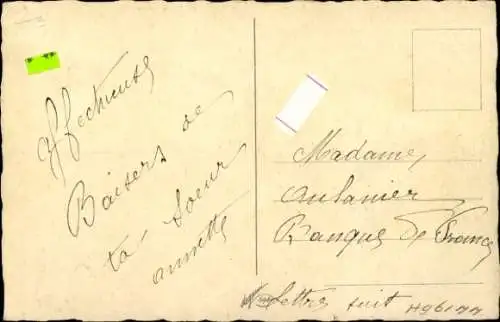 Affectueuse
Baisers de
ta Soeur
annette
Madame
Aulanier
Banque de France
Lettre suit
H96177